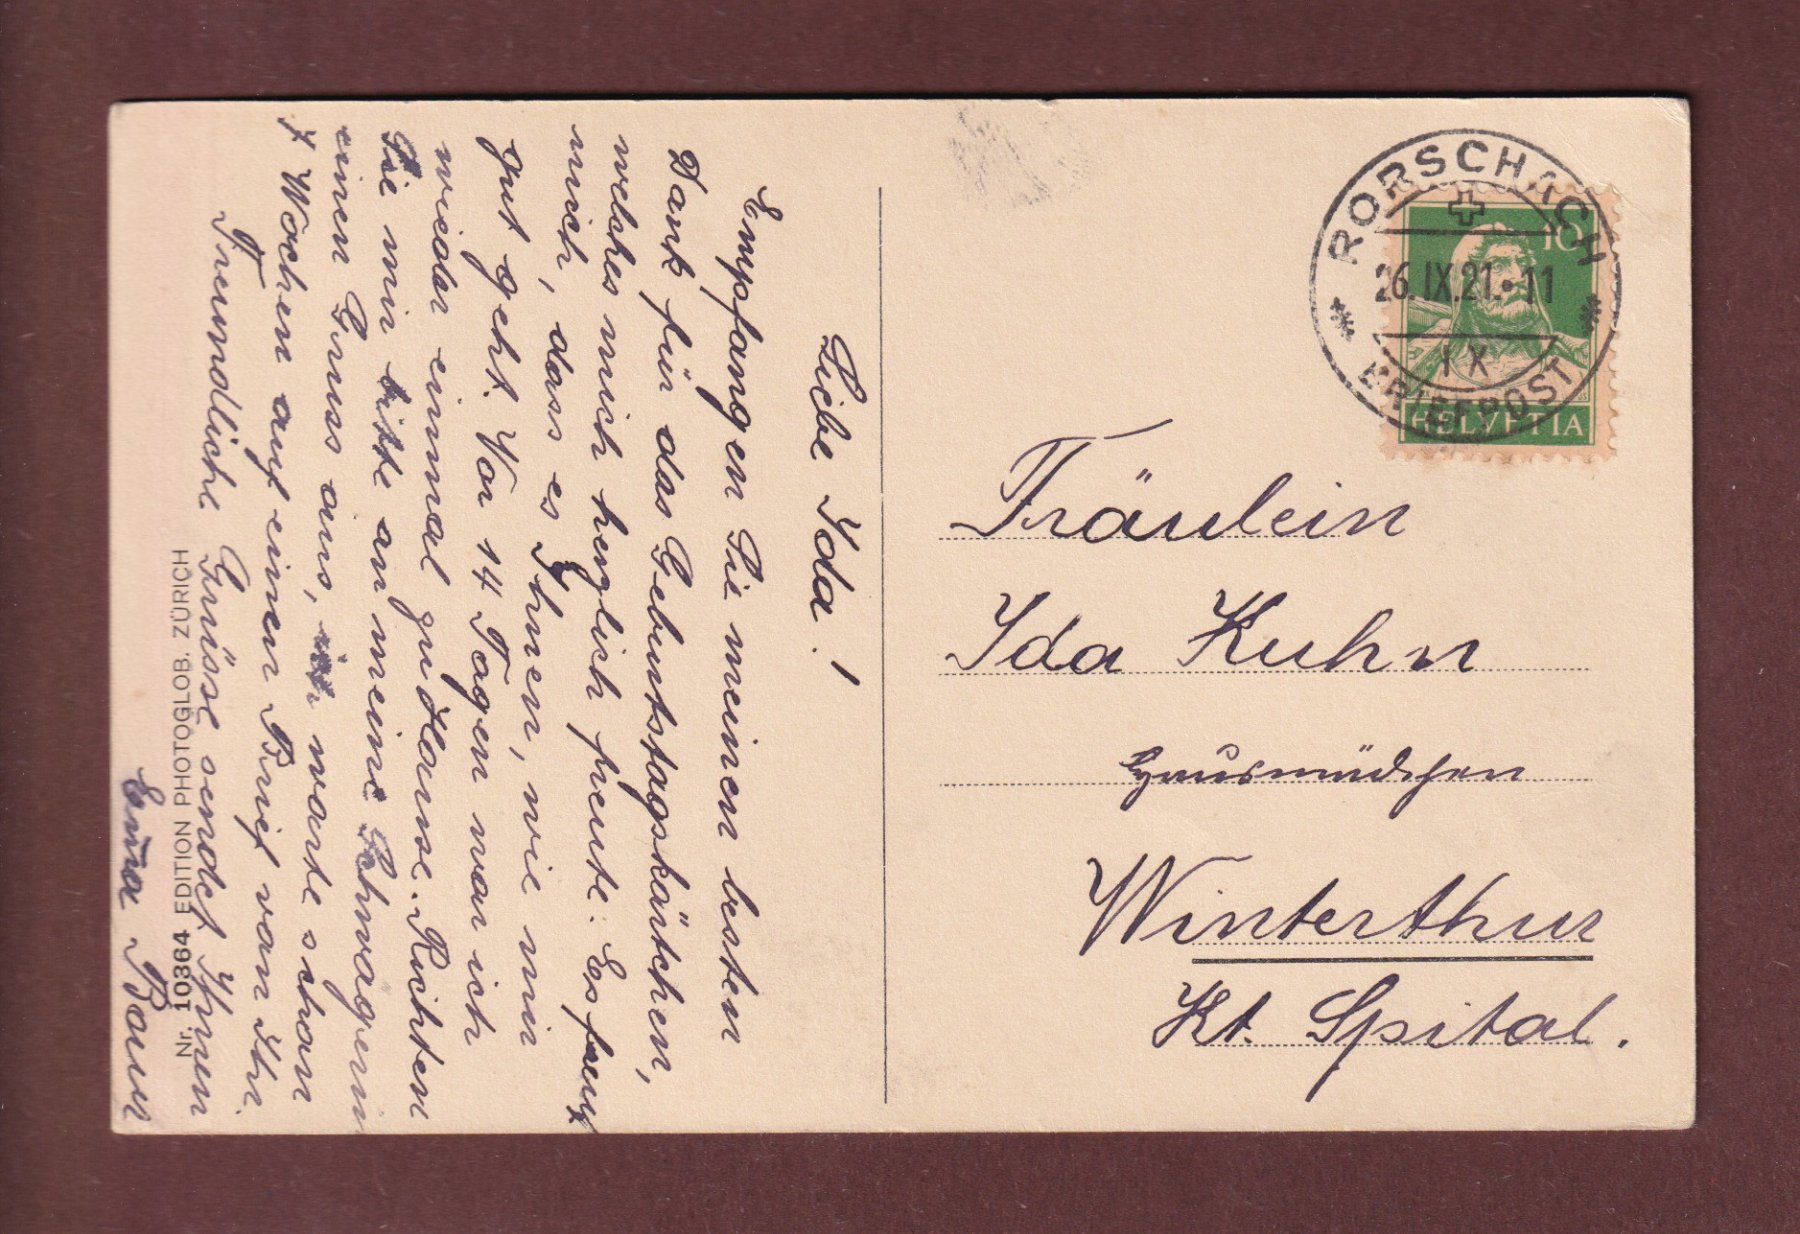 Liebe Ida!
Empfangen Sie meinen besten
Dank für das Geburtstagskärtchen,
welches mich herzlich freute. Es freut
mich, dass es Ihnen, wie mir
gut geht. Vor 14 Tagen war ich
wieder einmal zu Hause. Richten
Sie mir bitte an meine Schwägerin
einen Gruss aus, warte schon
Wochen auf einen Brief von Ihr.
Freundliche Grüsse sendet Ihnen
Emma Baur
Nr. 10364 EDITION PHOTOGLOB. ZÜRICH
RORSCHACH
26.IX.21.-11
IX
BRIEFPOST
10
HELVETIA
Fräulein
Ida Kuhn
Hausmädchen
Winterthur
Kt. Spital.